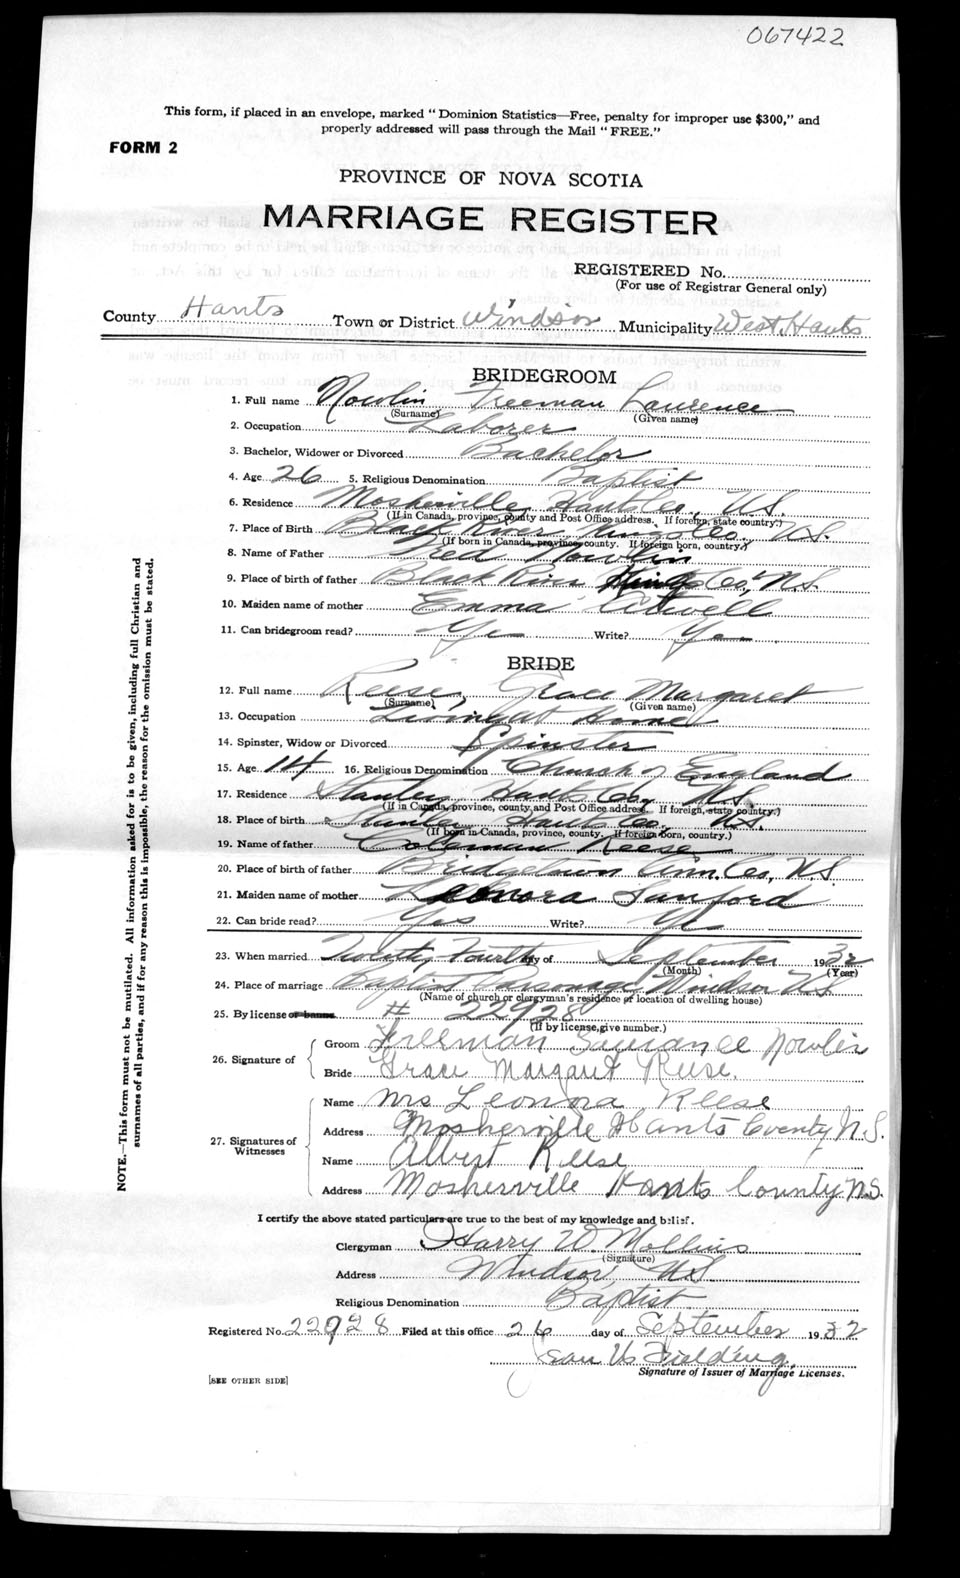 067422
This form, if placed in an envelope, marked "Dominion Statistics—Free, penalty for improper use $300," and
properly addressed will pass through the Mail "FREE."
FORM 2
PROVINCE OF NOVA SCOTIA
MARRIAGE REGISTER
REGISTERED No.
(For use of Registrar General only)
County Hants Town or District Windsor Municipality West Hants
BRIDEGROOM
1. Full name Nowlin Freeman Laurence
(Surname) (Given name)
2. Occupation Laborer
3. Bachelor, Widower or Divorced Bachelor
4. Age 26 5. Religious Denomination Baptist
6. Residence Mosherville Hants Co., N.S.
(If in Canada, province, county and Post Office address. If foreign, state country.)
7. Place of Birth Black River Kings Co. N.S.
(If born in Canada, province, county. If foreign born, country.)
8. Name of Father Fred Nowlin
9. Place of birth of father Black River Kings Co, N.S.
10. Maiden name of mother Emma Atwell
11. Can bridegroom read? Yes Write? Yes
BRIDE
12. Full name Reese, Grace Margaret
(Surname) (Given name)
13. Occupation Living at Home
14. Spinster, Widow or Divorced Spinster
15. Age 14 16. Religious Denomination Church of England
17. Residence Stanley Hants Co, N.S.
(If in Canada, province, county, and Post Office address. If foreign, state country.)
18. Place of birth Stanley Hants Co, N.S.
(If born in Canada, province, county. If foreign born, country.)
19. Name of father Coleman Reese
20. Place of birth of father Bridgetown Ann. Co, N.S.
21. Maiden name of mother Leonora Sanford
22. Can bride read? Yes Write? Yes
23. When married Twenty-Fourth day of September 1932
(Month) (Year)
24. Place of marriage Baptist Parsonage Windsor N.S.
(Name of church or clergyman's residence or location of dwelling house)
25. By license or banns # 22928
(If by license, give number.)
26. Signature of
Groom Freeman Laurance Nowlin
Bride Grace Margaret Reese.
27. Signatures of Witnesses
Name Mrs Leonora Reese
Address Mosherville Hants County N.S.
Name Albert Reese
Address Mosherville Hants County N.S.
I certify the above stated particulars are true to the best of my knowledge and belief.
Clergyman Harry W. Mollins
(Signature)
Address Windsor, N.S.
Religious Denomination Baptist
Registered No. 22928 Filed at this office 26 day of September 1932
Fielding,
Signature of Issuer of Marriage Licenses.
[SEE OTHER SIDE]
NOTE.—This form must not be mutilated. All information asked for is to be given, including full Christian and
surnames of all parties, and if for any reason this is impossible, the reason for the omission must be stated.